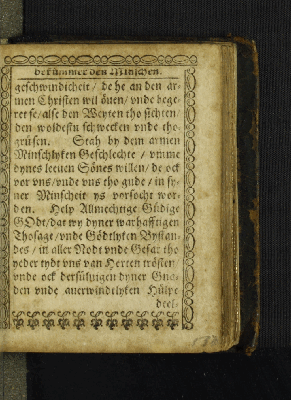 bekümmerden Minschen.
geschwindicheit / de he an den ar-
men Christen wil öuen / vnde bege-
ret se / alse den Weyten tho sichten /
den woldestu schwecken vnde tho-
grüsen. Stah by dem armen
Minschlyken Geschlechte / vmme
dynes leeuen Sönes willen / de ock
vor vns / vnde vns tho gude / in sy-
ner Minscheit ys vorsocht wor-
den. Help Allmechtige Güdige
GOdt / dat wy dyner warhafftigen
Thosage / vnde Gödtlyken Bystan-
des / in aller Nodt vnde Gefar tho
yeder tydt vns van Herten trösten /
vnde ock dersüluigen dyner Gna-
den vnde auerwindtlyken Hülpe
deel-